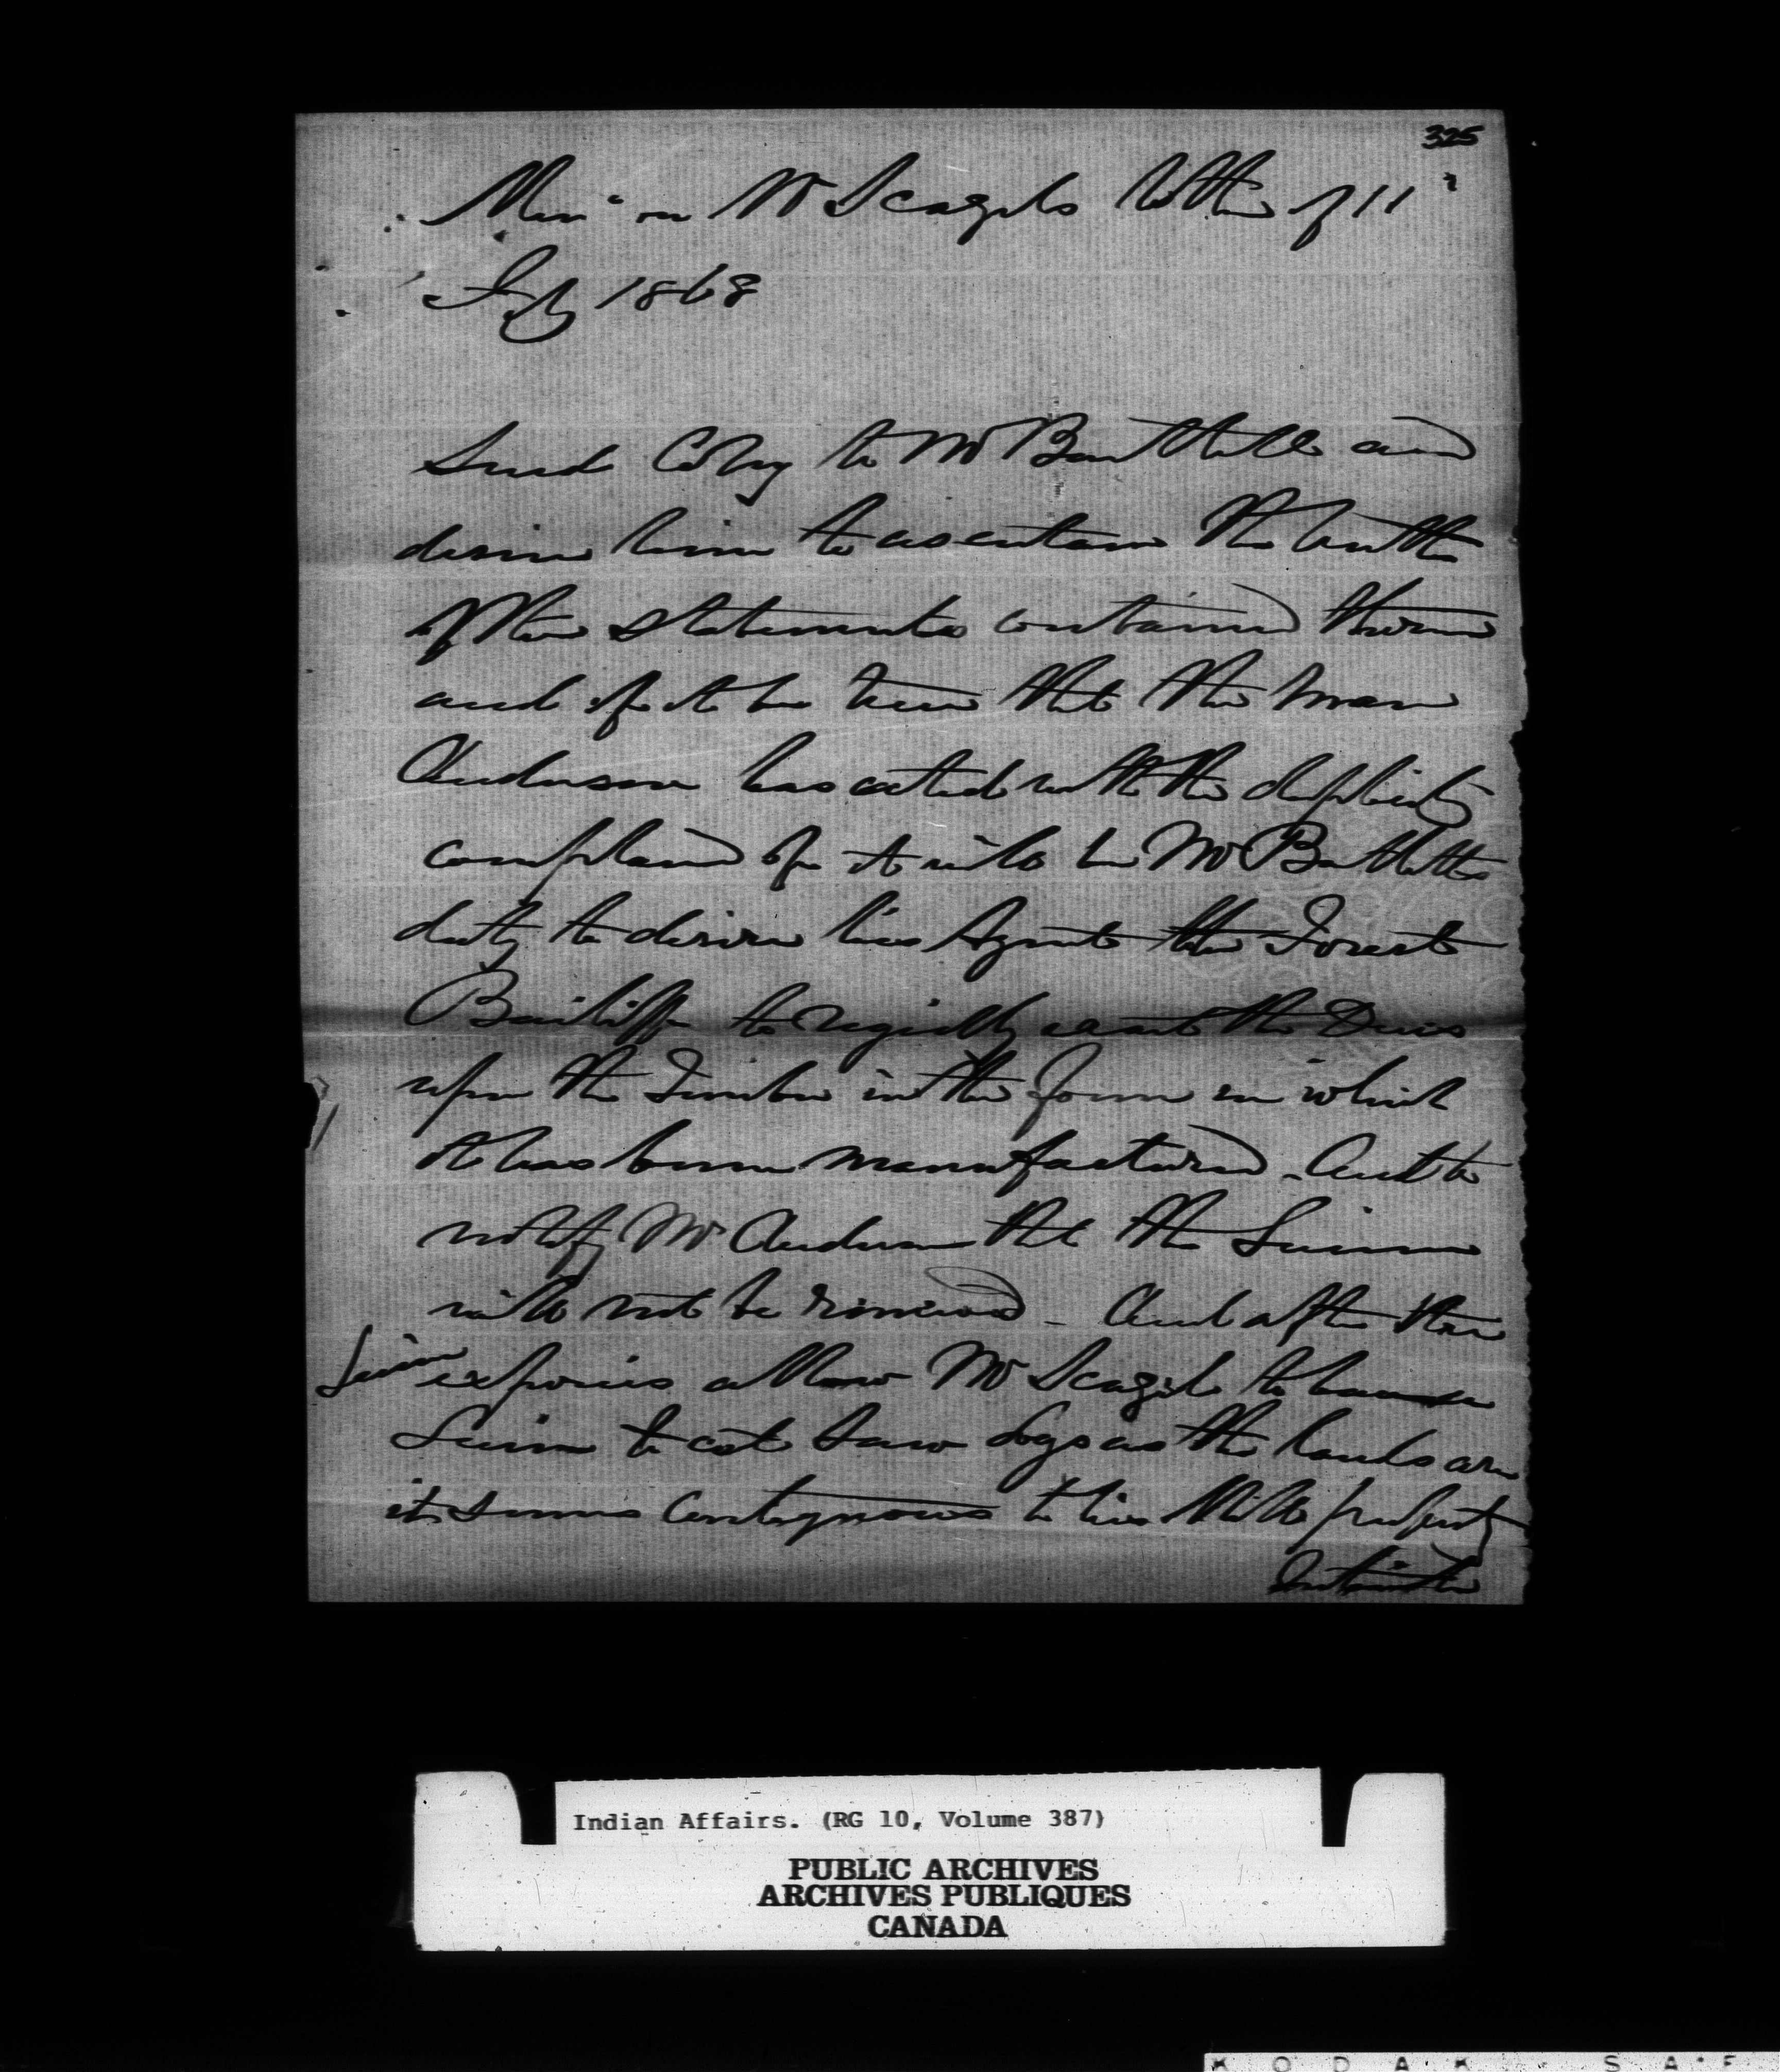 325
Mem° on Mr Scagels letter of 11"
Feby 1868
Send Copy to Mr Bartlett and
desire him to ascertain the truth
of the statements contained therein
and if it be true that the man
Anderson has acted with the duplicity
complained of it will be Mr Bartletts
duty to desire his Agent the Forest
Bailiff to rigidly exact the Dues
upon the Timber in the form in which
it has been manufactured - And to
notify Mr Anderson that the License
will not be renewed - And after the
License expires allow Mr Scagel to have a
License to cut Saw logs as the lands are
it seems contiguous to his Mill property
Indian Affairs. (RG 10, Volume 387)
PUBLIC ARCHIVES
ARCHIVES PUBLIQUES
CANADA
KODAK SAF